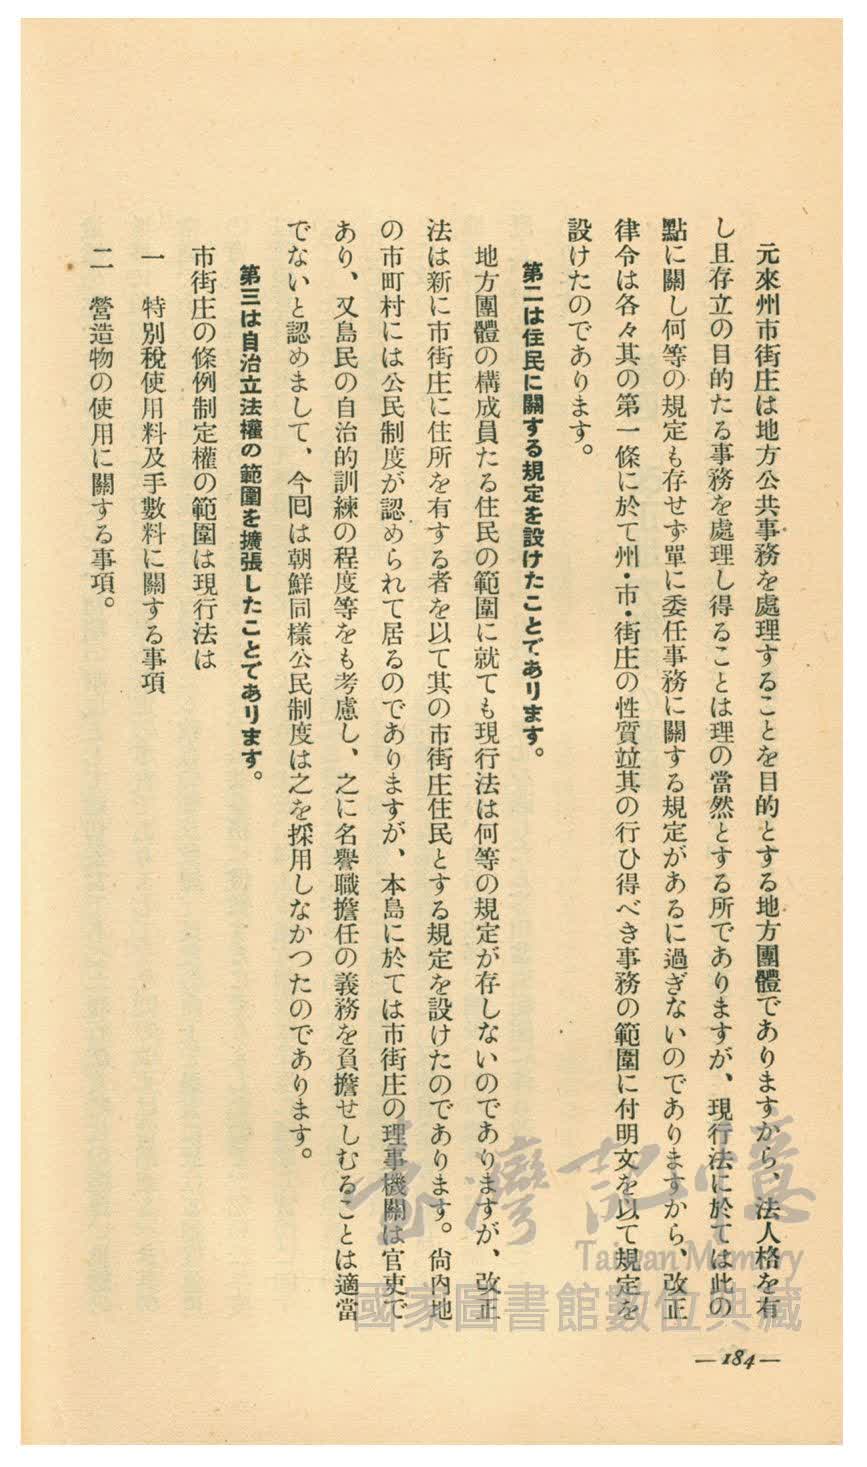 元來州市街庄は地方公共事務を處理することを目的とする地方團體でありますから、法人格を有
し且存立の目的たる事務を處理し得ることは理の當然とする所でありますが、現行法に於ては此の
點に關し何等の規定も存せず單に委任事務に關する規定があるに過ぎないのでありますから、改正
律令は各々其の第一條に於て州・市・街庄の性質竝其の行ひ得べき事務の範圍に付明文を以て規定を
設けたのであります。
第二は住民に關する規定を設けたことであります。
地方團體の構成員たる住民の範圍に就ても現行法は何等の規定が存しないのでありますが、改正
法は新に市街庄に住所を有する者を以て其の市街庄住民とする規定を設けたのであります。尙內地
の市町村には公民制度が認められて居るのでありますが、本島に於ては市街庄の理事機關は官吏で
あり、又島民の自治的訓練の程度等をも考慮し、之に名譽職擔任の義務を負擔せしむることは適當
でないと認めまして、今回は朝鮮同樣公民制度は之を採用しなかつたのであります。
第三は自治立法權の範圍を擴張したことであります。
市街庄の條例制定權の範圍は現行法は
一　特別稅使用料及手數料に關する事項
二　營造物の使用に關する事項。
— 184 —
臺灣記憶
Taiwan Memory
國家圖書館數位典藏